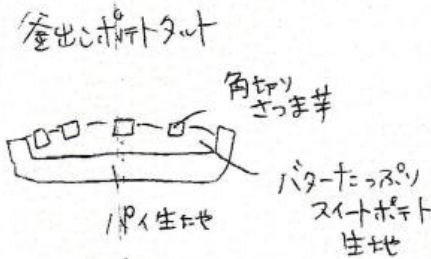 釜出しポテトタルト
角切り
さつま芋
バターたっぷり
スイートポテト
生地
パイ生たや